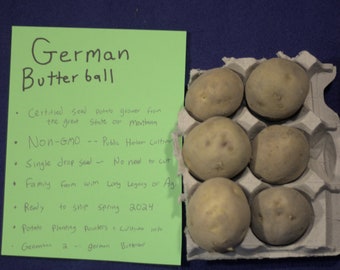 German
Butterball
• Certified seed potato grower from
the great state of Montana
• Non-GMO -- Public Domain Cultivar
• Single drop seed - No need to cut
• Family Farm with Long Legacy of Ag
• Ready to ship spring 2024
• Potato Planting Pointers + Cultivar info
• German